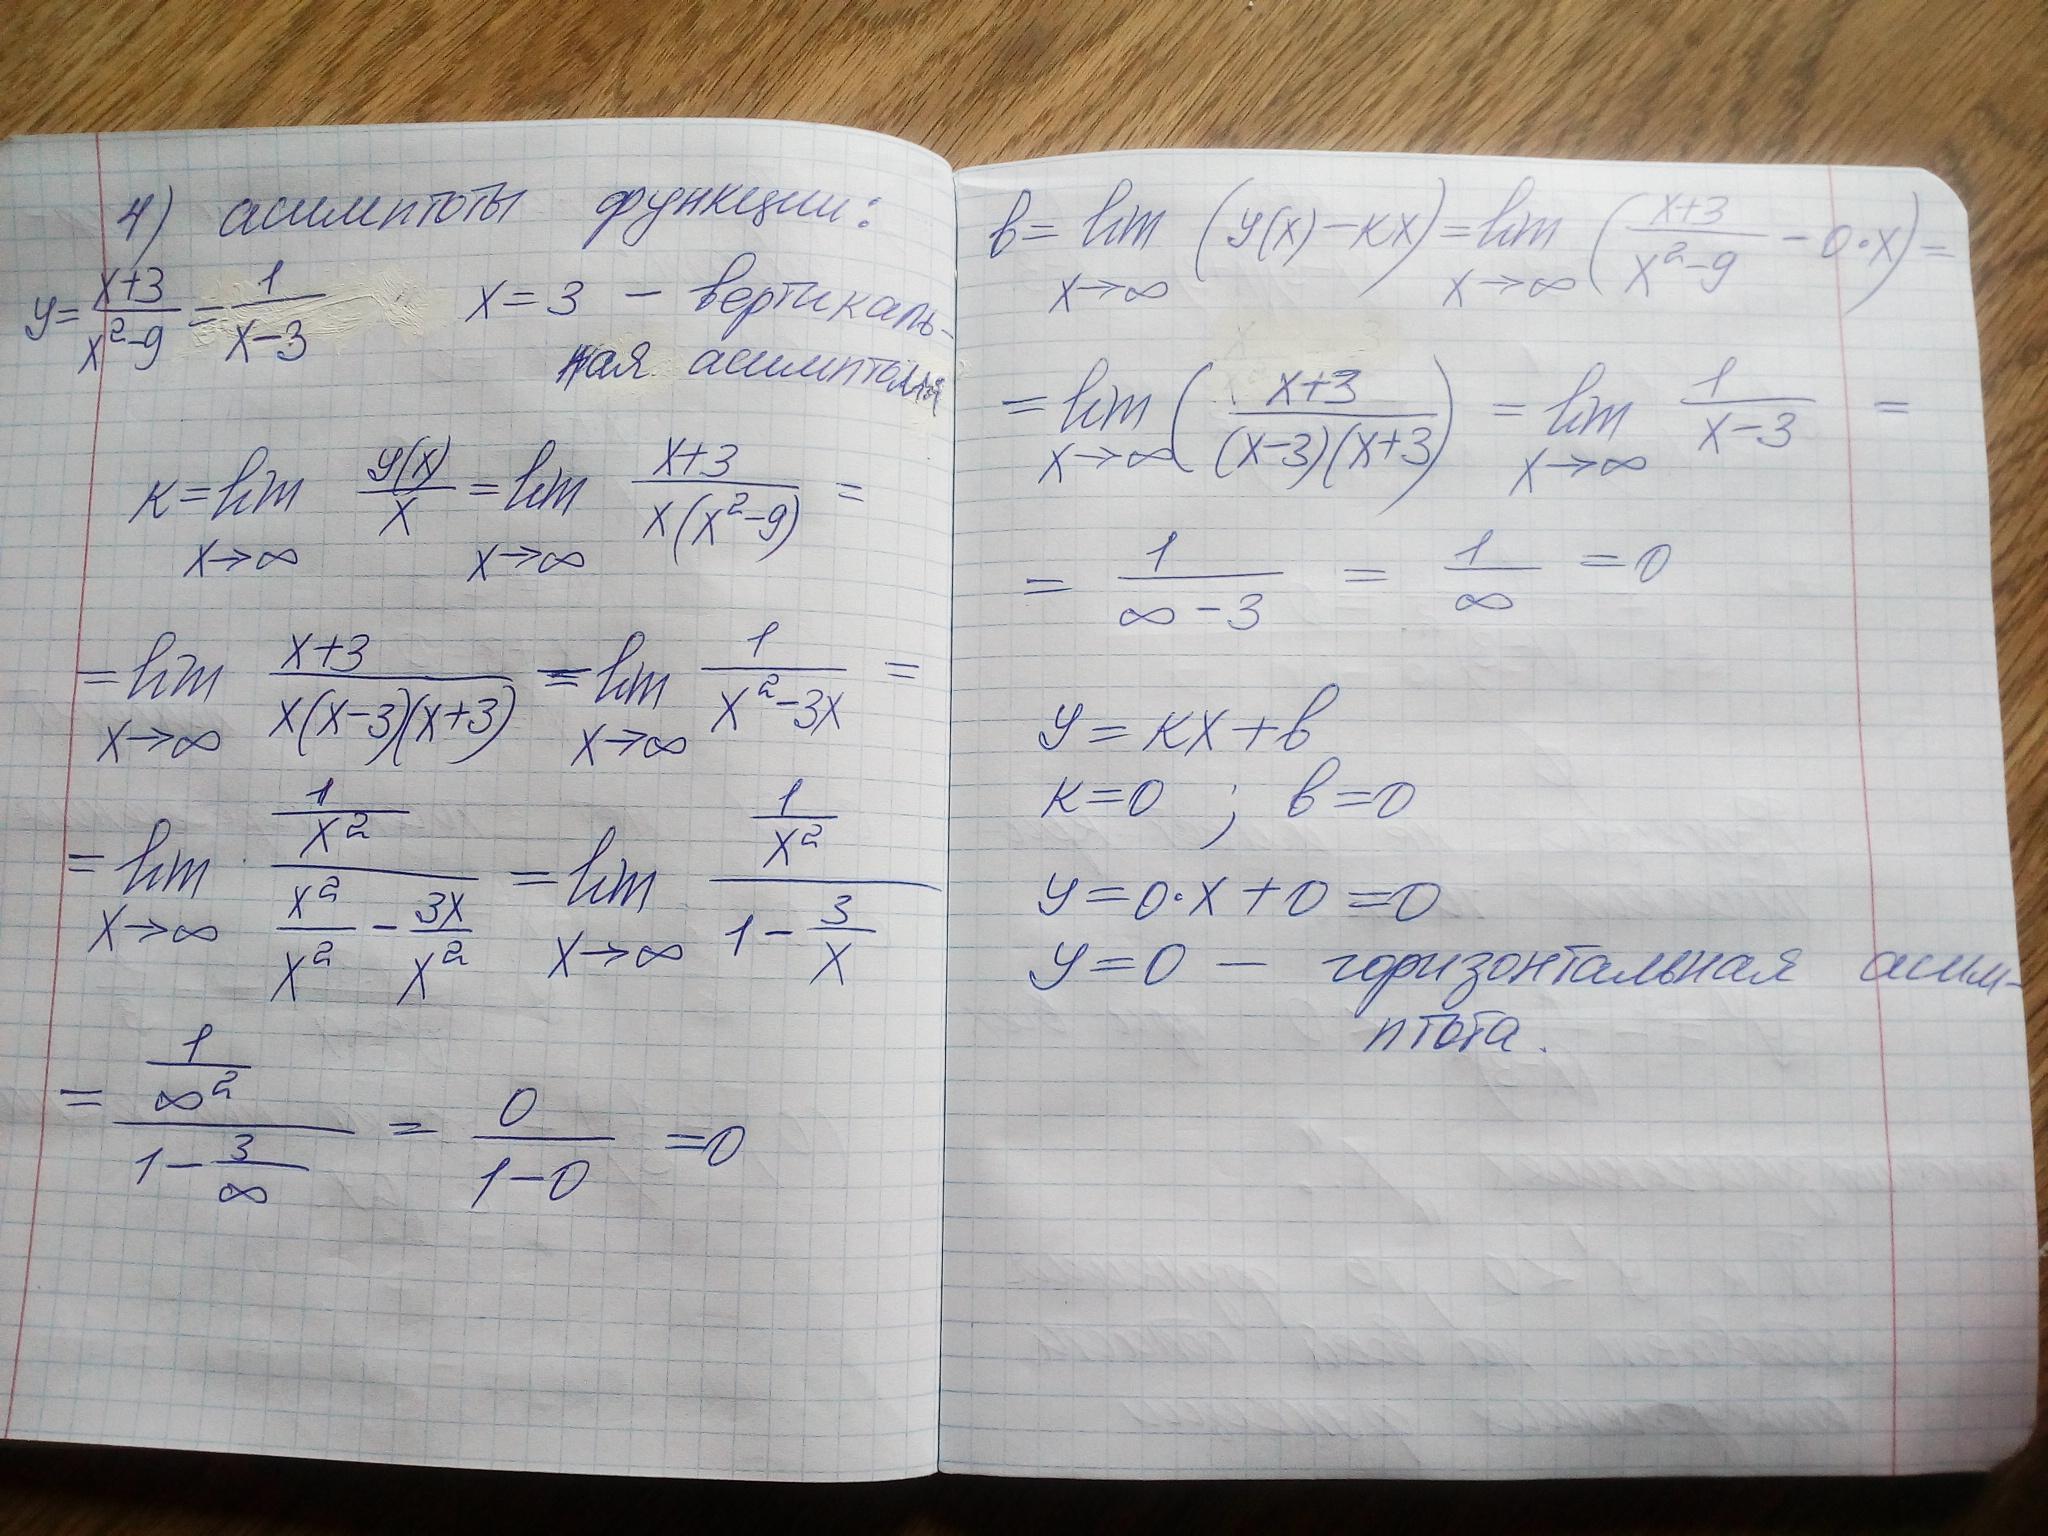 4) асимптоты функции:
y = (x+3)/(x²-9) = 1/(x-3) x = 3 – вертикаль-
ная
к = lim x→∞ y(x)/x = lim x→∞ (x+3)/(x(x²-9)) =
= lim x→∞ (x+3)/(x(x-3)(x+3)) = lim x→∞ 1/(x²-3x) =
= lim x→∞ (1/x²)/(x²/x² - 3x/x²) = lim x→∞ (1/x²)/(1 - 3/x)
= (1/∞²)/(1 - 3/∞) = 0/(1-0) = 0
в = lim x→∞ (y(x) - кx) = lim x→∞ ((x+3)/(x²-9) - 0·x) =
= lim x→∞ ((x+3)/((x-3)(x+3))) = lim x→∞ 1/(x-3) =
= 1/(∞-3) = 1/∞ = 0
y = кx + в
к = 0 ; в = 0
y = 0·x + 0 = 0
y = 0 – горизонтальная асим-
птота.